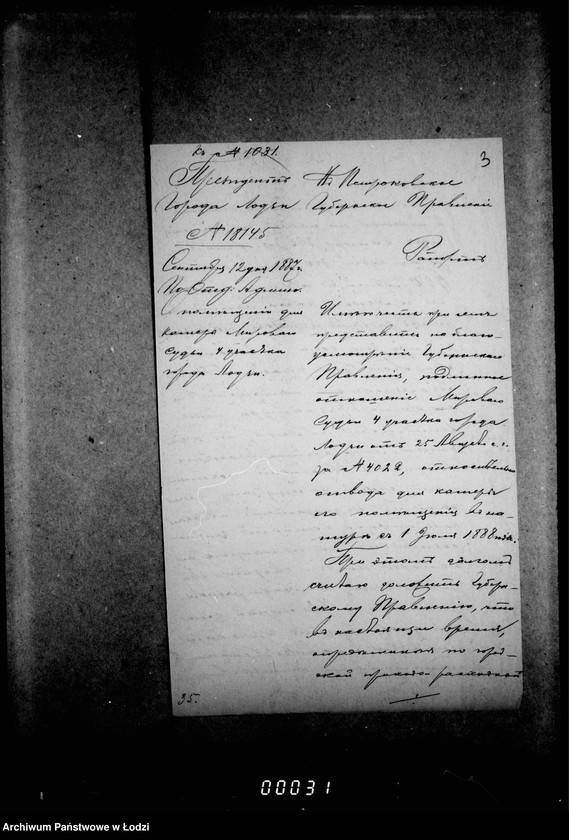 Къ № 1031.
3
Президентъ
Города Лодзи
№ 18145
Сентября 12 дня 1887 г.
По Отд: Админ.
О помещении для
камеры Мирового
Судьи 4 участка
города Лодзи.
Въ Петроковское
Губернское Правленіе
Рапортъ
при семъ
представить на благо-
усмотреніе Губернскаго
Правленія, подлинное
отношеніе Мироваго
Судьи 4 участка города
Лодзи отъ 25 Августа с. г.
за № 4022, относительно
отвода для камеры
его помещенія въ на-
туре съ 1 Іюля 1888 года.
При этомъ долгомъ
считаю доложить Губерн-
скому Правленію, что
въ настоящее время,
по город-
ской
35.
00031
Archiwum Państwowe w Łodzi